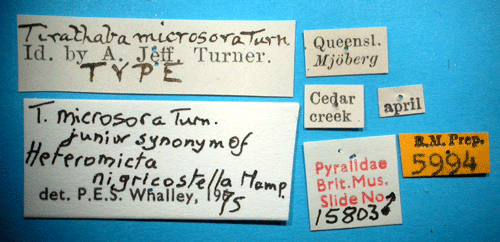 Tirathaba microsora Turn
Id. by A. Jeff. Turner.
TYPE
Queensl.
Mjöberg
Cedar
creek
april
T. microsora Turn.
junior synonym of
Heteromicta
nigricostella Hamp.
det. P.E.S. Whalley, 1975
Pyralidae
Brit.Mus.
Slide No.
15803♂
R.M. Prep.
5994